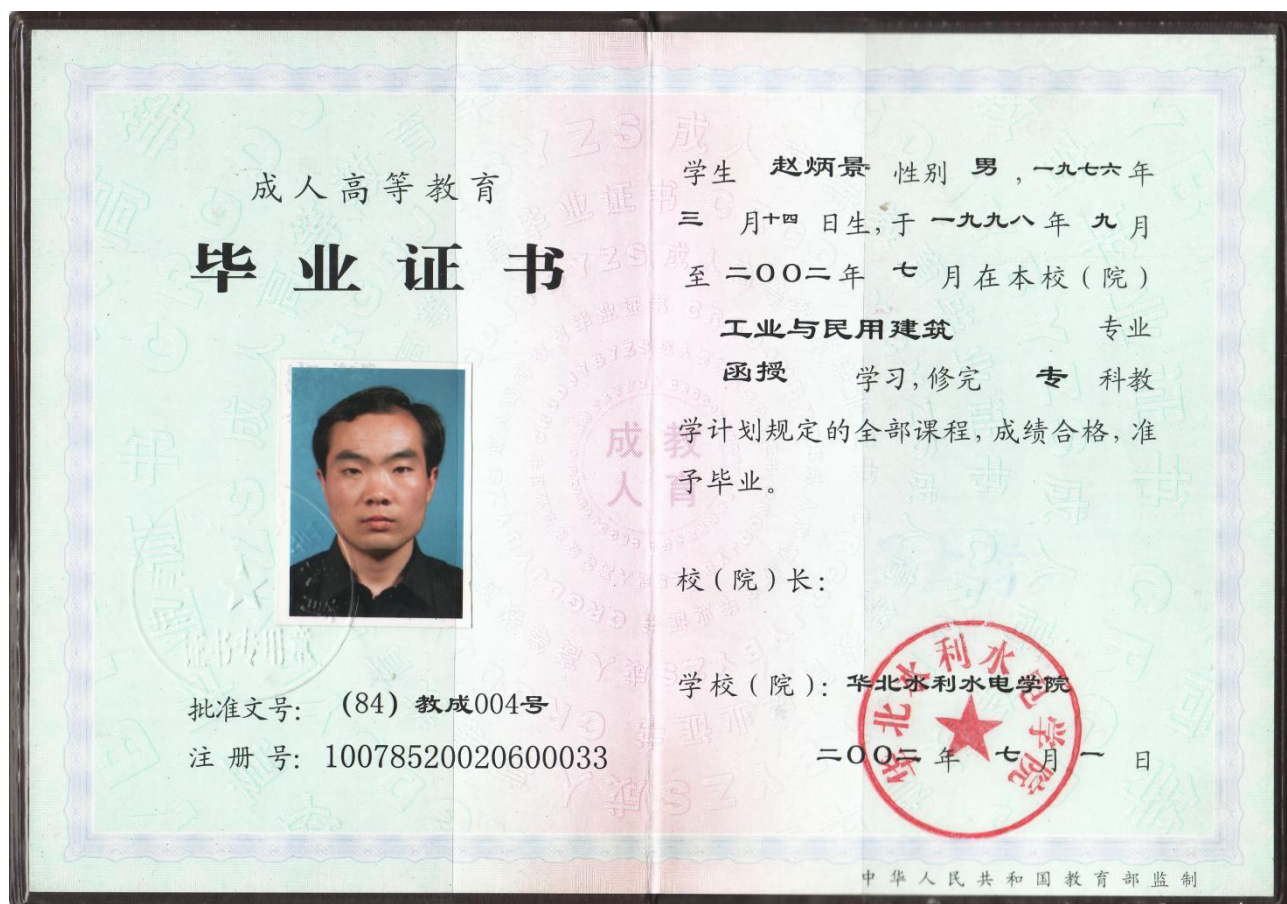 成人高等教育
毕业证书
批准文号: (84) 教成004号
注册号: 10078520020600033
学生 赵炳景 性别 男 ,一九七六年
三 月十四 日生,于 一九九八 年 九 月
至 二〇〇二 年 七 月在本校(院)
工业与民用建筑 专业
函授 学习,修完 专 科教
学计划规定的全部课程,成绩合格,准
予毕业。
校(院)长:
学校(院): 华北水利水电学院
二〇〇二 年 七 月 一 日
华北水利水电学院
成教
人育
证书专用章
中华人民共和国教育部监制